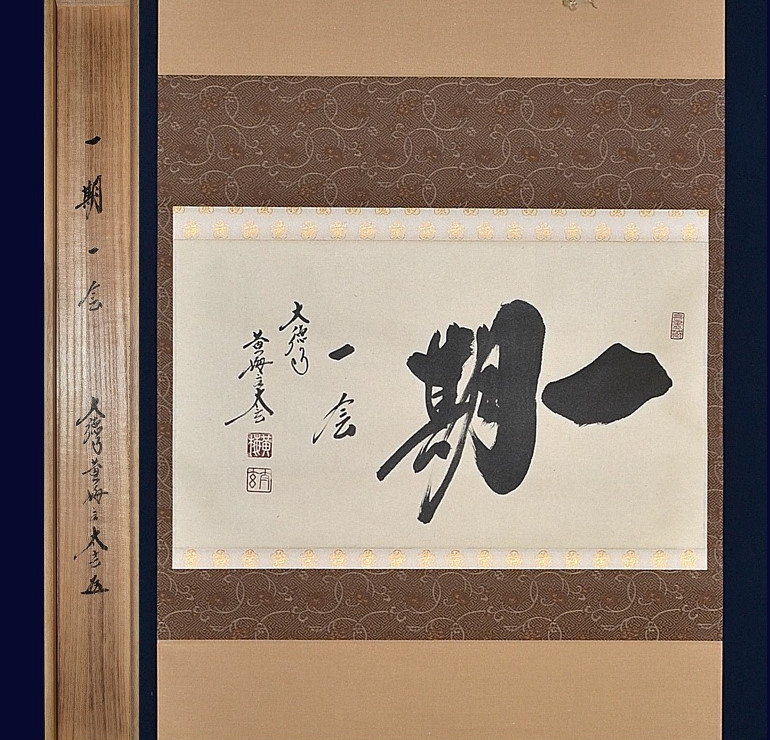 一期
一会
大徳寺
黄梅主太玄
黄梅
一期一会 大徳寺黄梅主太玄